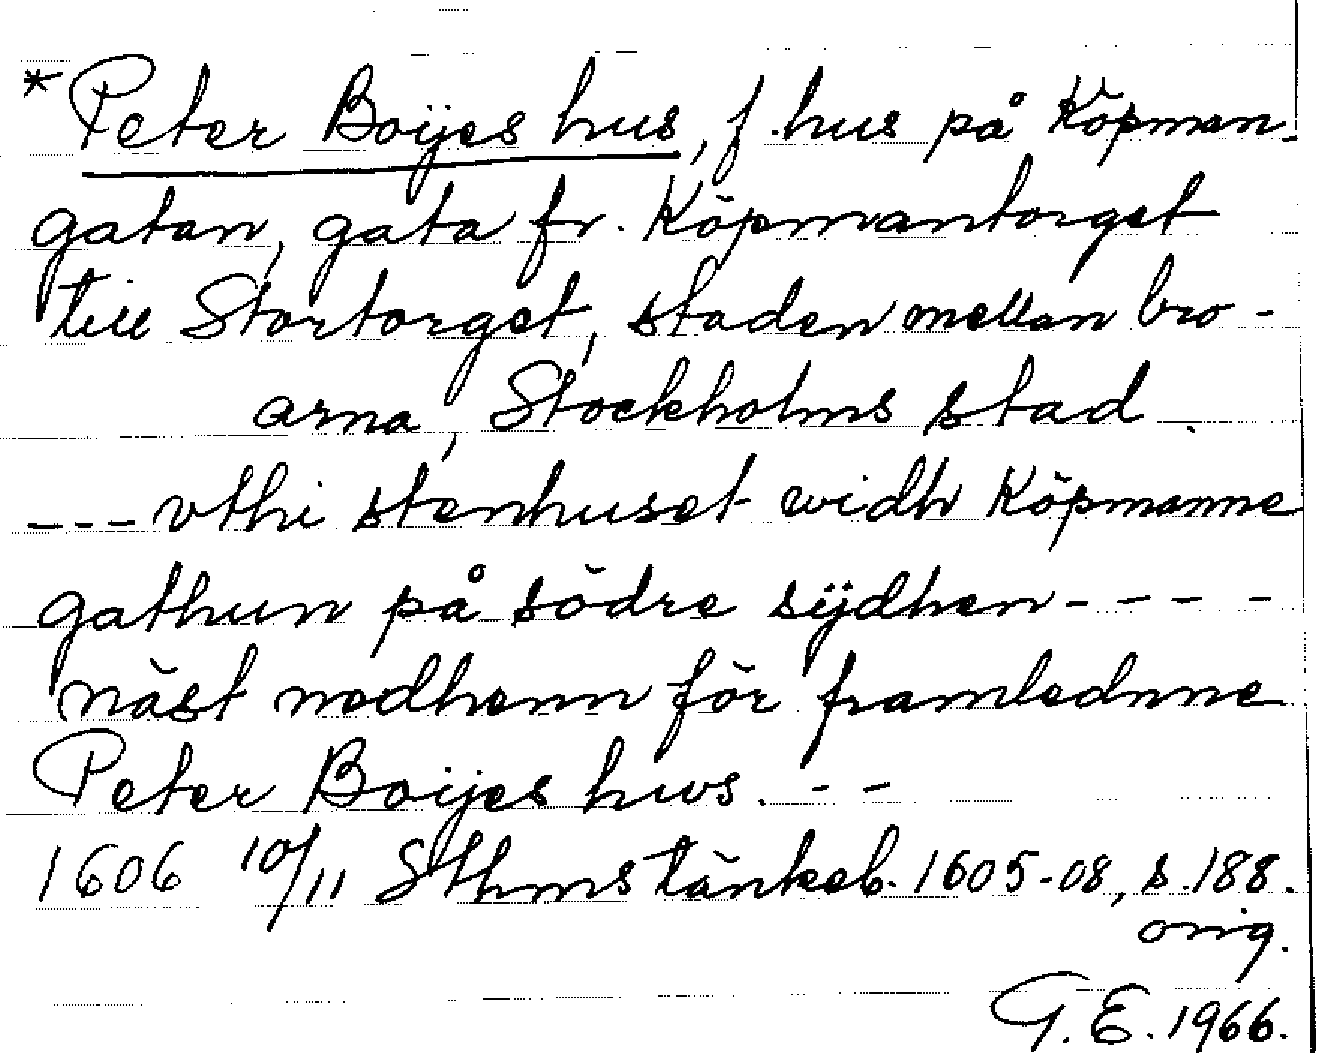 * Peter Boijes hus, f. hus på Köpman-
gatan, gata fr. Köpmantorget
till Stortorget, staden mellan bro-
arna, Stockholms stad.
--- vthi stenhuset widh Köpmanne
gathun på södre sÿdhen----
näst nedhenn för framlednne
Peter Boijes hws.--
1606 10/11 Sthms tänkeb. 1605-08, s. 188.
orig.
G.E. 1966.